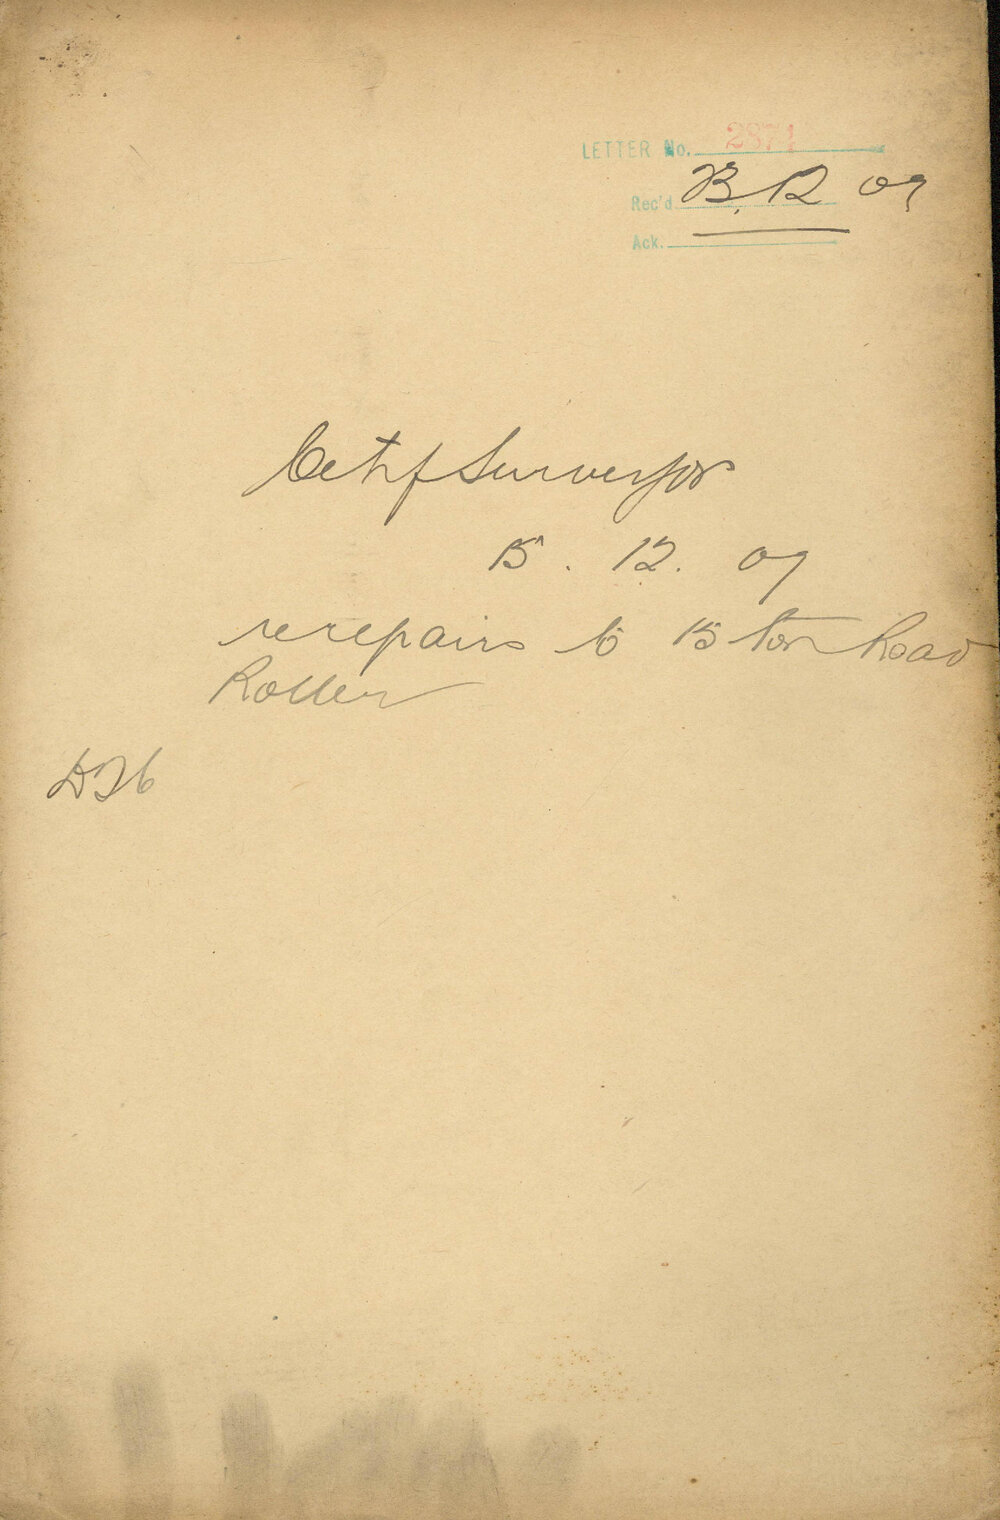 LETTER No. 2371
Rec'd 15.12 07
Ack.
City Surveyor
15. 12. 07
re repairs to 15 ton Road
Roller